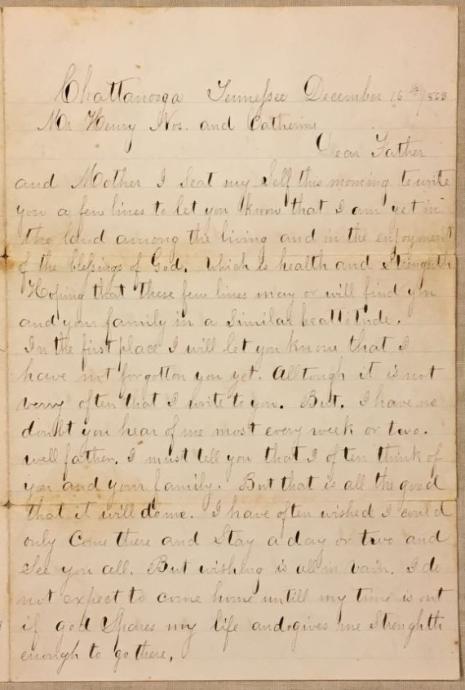 Chattanooga Tennessee December 16th 1863
Mr Henry and Catherine
Dear Father
and Mother I Seat my Self this morning to write
you a few lines to let you know that I am yet in
the land among the living and in the enjoyment
of the blessings of God. Which is health and Strength
Hoping that these few lines may or will find you
and your family in a Similar
In the first place I will let you know that I
have not forgotten you yet. Although it is not
verry often that I write to you. But. I have no
doubt you hear of me most every week or two.
well father. I must tell you that I often think of
you and your family. But that is all the good
that it will do me. I have often wished I could
only Come there and Stay a day or two and
See you all. But wishing is all in vain. I do
not expect to come home untill my time is out
if god Spares my life and gives me Strength
enough to go there.